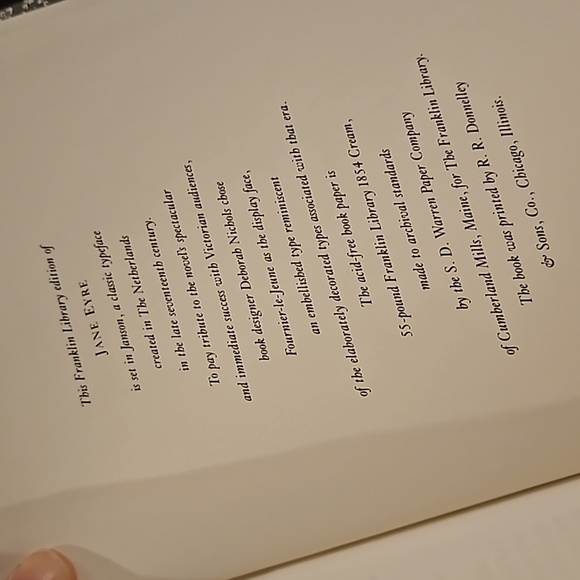 This Franklin Library edition of
JANE EYRE
is set in Janson, a classic typeface
created in The Netherlands
in the late seventeenth century.
To pay tribute to the novel's spectacular
and immediate success with Victorian audiences,
book designer Deborah Nichols chose
Fournier-le-Jeune as the display face,
an embellished type reminiscent
of the elaborately decorated types associated with that era.
The acid-free book paper is
55-pound Franklin Library 1854 Cream,
made to archival standards
by the S. D. Warren Paper Company
of Cumberland Mills, Maine, for The Franklin Library.
The book was printed by R. R. Donnelley
& Sons, Co., Chicago, Illinois.